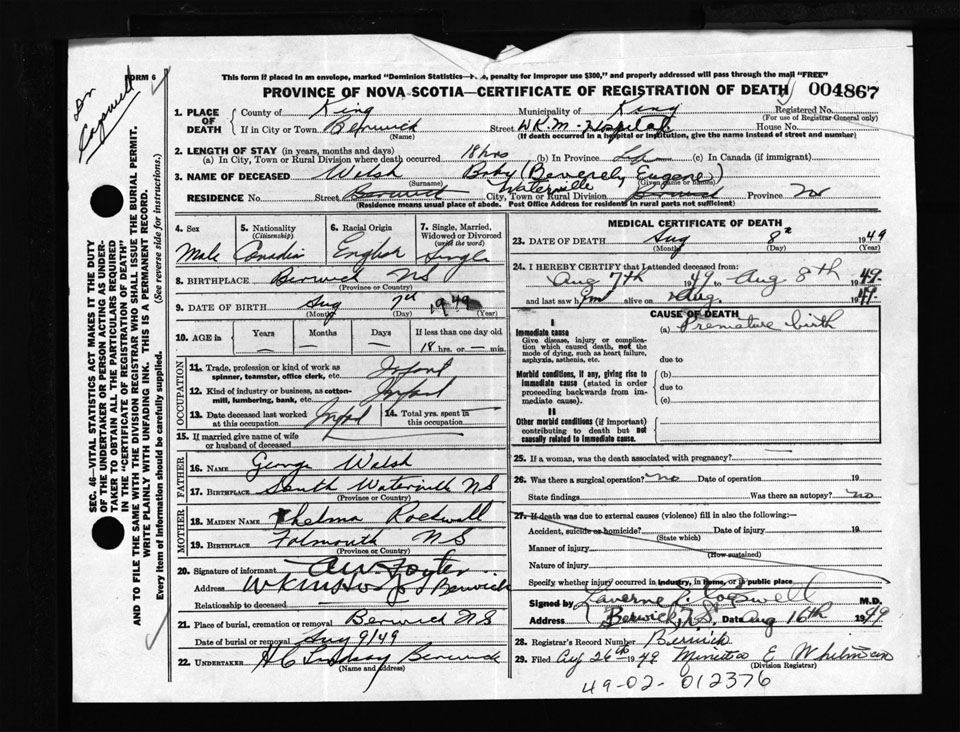 FORM 6
Dr Cogswell
This form if placed in an envelope, marked "Dominion Statistics—Free, penalty for improper use $300," and properly addressed will pass through the mail "FREE"
PROVINCE OF NOVA SCOTIA—CERTIFICATE OF REGISTRATION OF DEATH 004867
SEC. 46—VITAL STATISTICS ACT MAKES IT THE DUTY
OF THE UNDERTAKER OR PERSON ACTING AS UNDER-
TAKER TO OBTAIN ALL THE PARTICULARS REQUIRED
IN THE "CERTIFICATE OF REGISTRATION OF DEATH"
AND TO FILE THE SAME WITH THE DIVISION REGISTRAR WHO SHALL ISSUE THE BURIAL PERMIT.
WRITE PLAINLY WITH UNFADING INK. THIS IS A PERMANENT RECORD.
Every item of Information should be carefully supplied. (See reverse side for instructions.)
1. PLACE OF DEATH County of King Municipality of King Registered No.
(For use of Registrar General only)
If in City or Town Berwick Street W.K.M. Hospital House No.
(Name) (If death occurred in a hospital or institution, give the name instead of street and number)
2. LENGTH OF STAY (in years, months and days)
(a) In City, Town or Rural Division where death occurred 18 hrs (b) In Province (c) In Canada (if immigrant)
3. NAME OF DECEASED Welsh Baby (Beverely Eugene)
(Surname) (Given name or names)
RESIDENCE No. Street Berwick Waterville City, Town or Rural Division Berwick Province NS
(Residence means usual place of abode. Post Office Address for residents in rural parts not sufficient)
4. Sex 5. Nationality (Citizenship) 6. Racial Origin 7. Single, Married, Widowed or Divorced (write the word)
Male Canadian English Single
8. BIRTHPLACE Berwick NS
(Province or Country)
9. DATE OF BIRTH Aug 7th 1949
(Month) (Day) (Year)
10. AGE in Years Months Days If less than one day old
— — — 18 hrs. or — min.
OCCUPATION
11. Trade, profession or kind of work as spinner, teamster, office clerk, etc. Infant
12. Kind of industry or business, as cotton-mill, lumbering, bank, etc. Infant
13. Date deceased last worked at this occupation Infant 14. Total yrs. spent in this occupation
15. If married give name of wife or husband of deceased
FATHER
16. NAME George Welsh
17. BIRTHPLACE South Waterville NS
(Province or Country)
MOTHER
18. MAIDEN NAME Thelma Rockwell
19. BIRTHPLACE Falmouth NS
(Province or Country)
20. Signature of informant A W Foster
Address W K M Hosp Berwick
Relationship to deceased
21. Place of burial, cremation or removal Berwick NS
Date of burial or removal Aug 9/49
22. UNDERTAKER H C Lindsay Berwick
(Name and address)
MEDICAL CERTIFICATE OF DEATH
23. DATE OF DEATH Aug 8th 1949
(Month) (Day) (Year)
24. I HEREBY CERTIFY that I attended deceased from:
Aug 7th 1949 to Aug 8th 1949
and last saw him alive on Aug. 1949
CAUSE OF DEATH
I
Immediate cause (a) Premature birth
Give disease, injury or complica-
tion which caused death, not the
mode of dying, such as heart failure,
asphyxia, asthenia, etc.
due to
Morbid conditions, if any, giving rise to (b)
immediate cause (stated in order due to
proceeding backwards from im-
mediate cause). (c)
II
Other morbid conditions (if important)
contributing to death but not
causally related to immediate cause.
25. If a woman, was the death associated with pregnancy? —
26. Was there a surgical operation? no Date of operation 19
State findings Was there an autopsy? no
27. If death was due to external causes (violence) fill in also the following:—
Accident, suicide or homicide? Date of injury 19
(State which)
Manner of injury
(How sustained)
Nature of injury
Specify whether injury occurred in industry, in home, or in public place
Signed by Laverne L. Cogswell M.D.
Address Berwick, N.S. Date Aug 16th 1949
28. Registrar's Record Number Berwick
29. Filed Aug 26th 1949 Minetta E Whilman
(Division Registrar)
49-02-012376